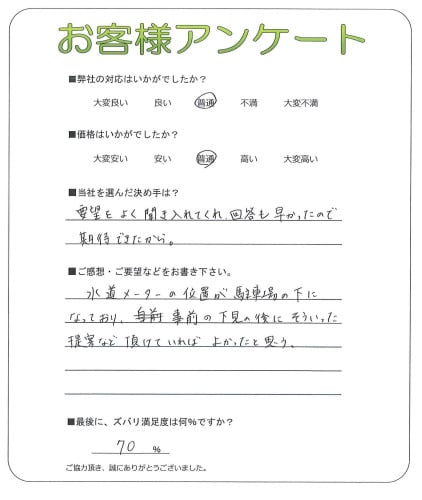 お客様アンケート
■弊社の対応はいかがでしたか？
大変良い 良い 普通 不満 大変不満
■価格はいかがでしたか？
大変安い 安い 普通 高い 大変高い
■当社を選んだ決め手は？
要望をよく聞き入れてくれ、回答も早かったので
期待できたから。
■ご感想・ご要望などをお書き下さい。
水道メーターの位置が駐車場の下に
なっており、事前の下見の後にそういった
提案など頂けていればよかったと思う、
■最後に、ズバリ満足度は何％ですか？
70 %
ご協力頂き、誠にありがとうございました。